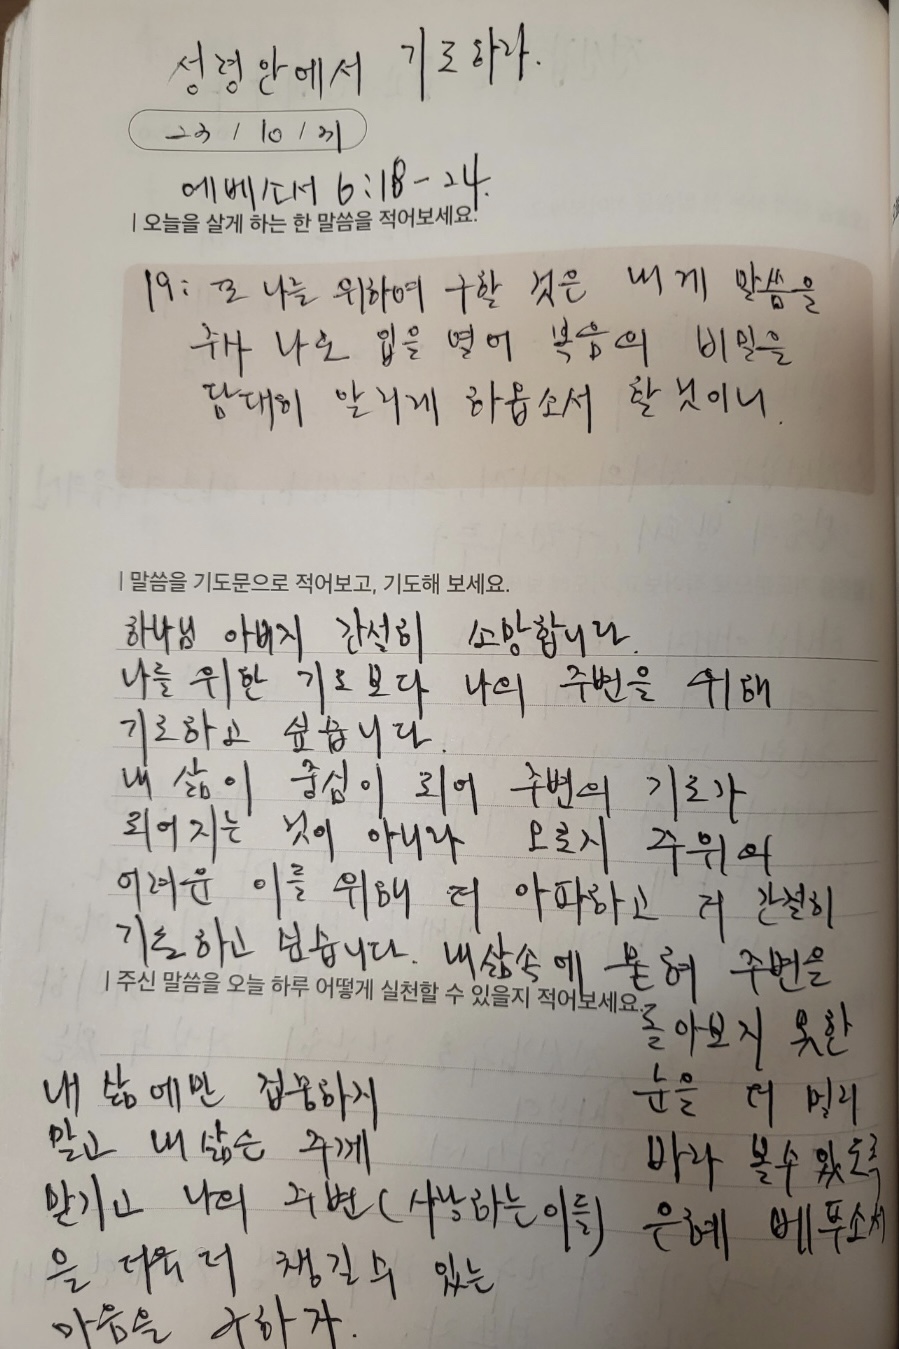 성령안에서 기도하라.
23 / 10 / 31
에베소서 6:18-24.
| 오늘을 살게 하는 한 말씀을 적어보세요.
19: 또 나를 위하여 구할 것은 내게 말씀을
주사 나로 입을 열어 복음의 비밀을
담대히 알리게 하옵소서 할 것이니.
| 말씀을 기도문으로 적어보고, 기도해 보세요.
하나님 아버지 간절히 소망합니다.
나를 위한 기도보다 나의 주변을 위해
기도하고 싶습니다.
내 삶이 중심이 되어 주변의 기도가
되어지는 것이 아니라 오로지 주위의
어려운 이를 위해 더 아파하고 더 간절히
기도하고 싶습니다. 내삶속에 묻혀 주변을
돌아보지 못한
눈을 더 멀리
바라 볼수 있도록
은혜 베푸소서
| 주신 말씀을 오늘 하루 어떻게 실천할 수 있을지 적어보세요.
내 삶에만 집중하지
말고 내 삶은 주께
맡기고 나의 주변(사랑하는이들)
을 더욱 더 챙길수 있는
마음을 구하자.